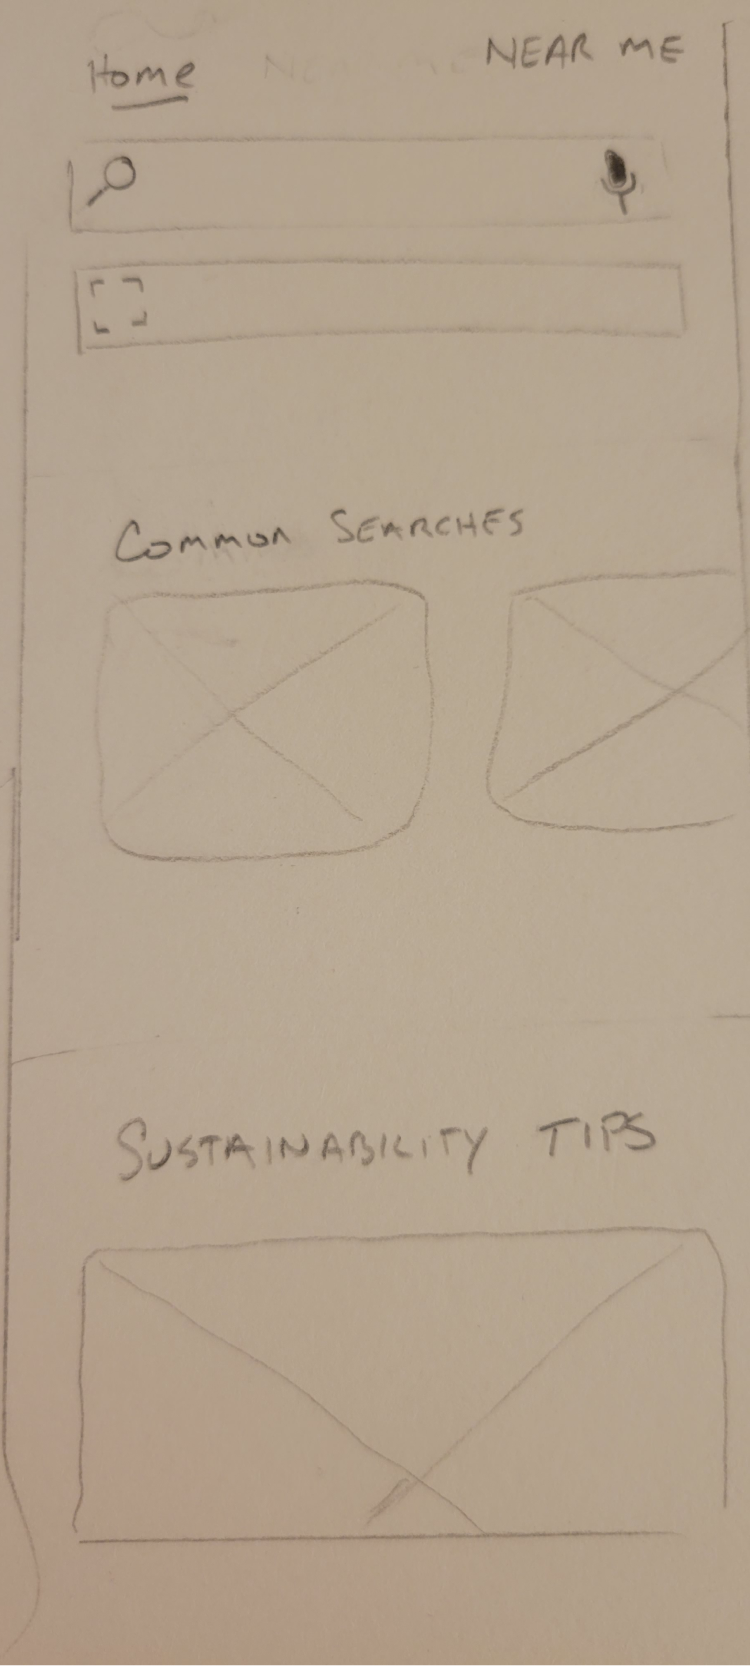 Home NEAR ME
COMMON SEARCHES
SUSTAINABILITY TIPS